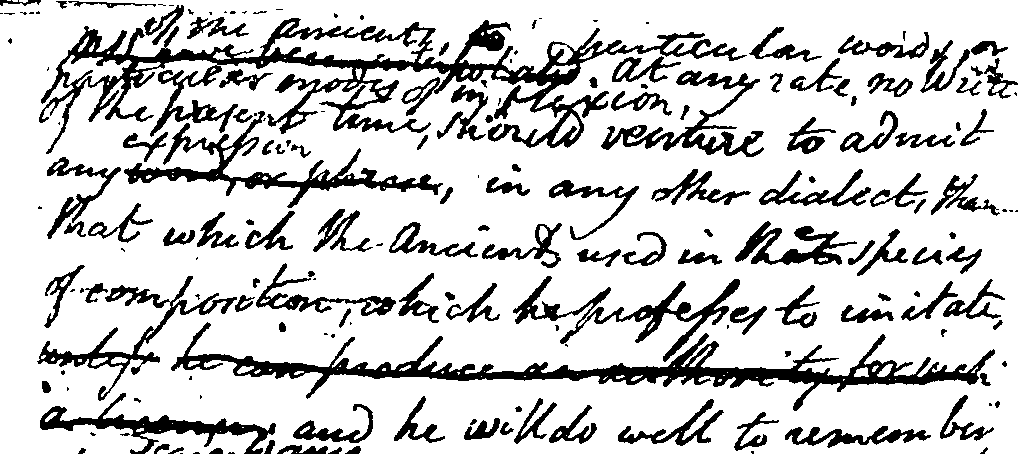 of the Ancients, to, particular words, or
particular modes of inflexion. At any rate, no Write
of the present time, should venture to admit
expression
any word, or phrase, in any other dialect, than
that which the Ancients used in that species
of composition, which he professes to imitate,
unless he can produce an authority for such
a licence, and he will do well to remember